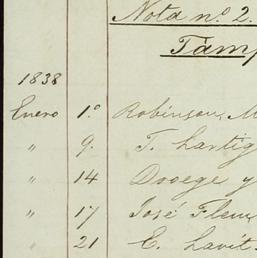 Nota nº 2.
Tamp
1838
Enero 1.º Robinson, M
" 9. T. Lartig
" 14 Droege y
" 17 José Fleur
" 21 E. Lavit